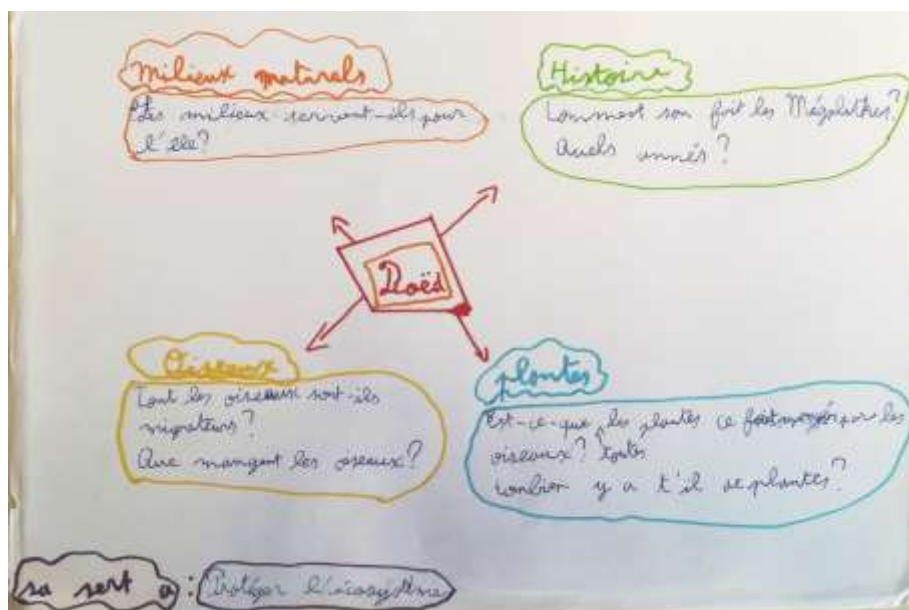 Milieux naturels
Les milieux servent-ils pour
l'île?
Histoire
Comment son fait les Mégalithes?
Quels annés?
Hoëd
Oiseaux
Tout les oiseaux sont-ils
migrateurs?
Que mangent les oseaux?
plantes
Est-ce-que les plantes ce font manger par les
oiseaux? toutes
Combien y a t'il de plantes?
sa sert a :
Protéger l'écosystème